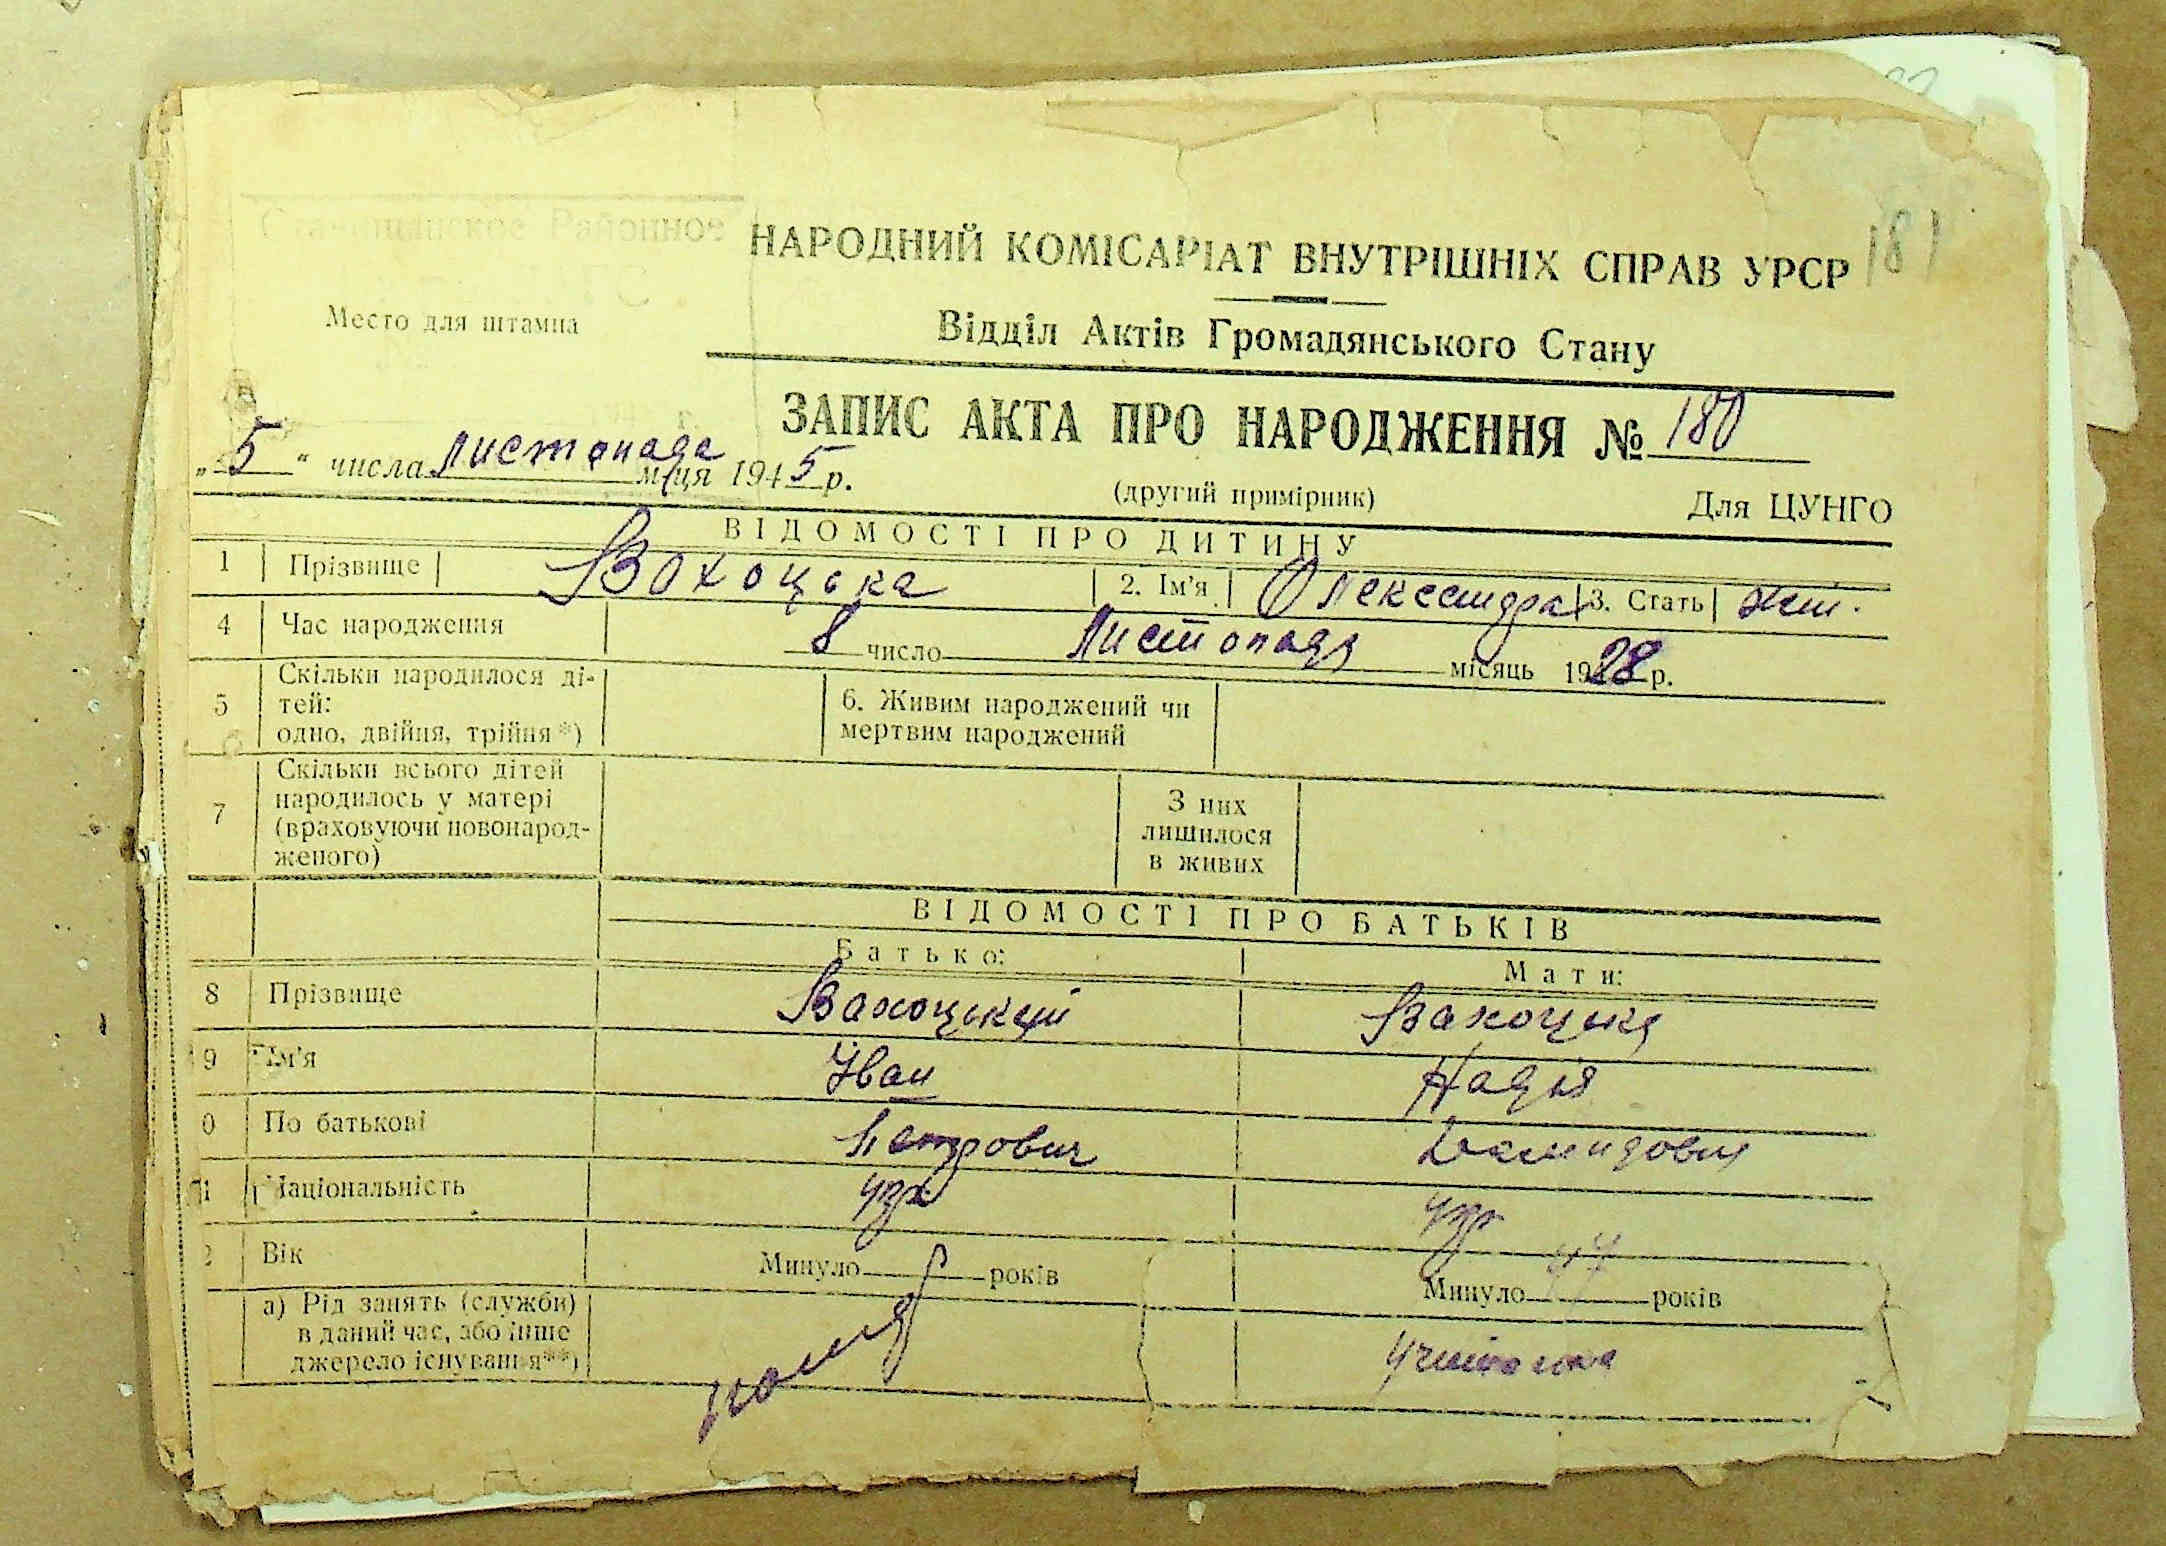 181
Районное
НАРОДНИЙ КОМІСАРІАТ ВНУТРІШНІХ СПРАВ УРСР
Место для штампа
Відділ Актів Громадянського Стану
ЗАПИС АКТА ПРО НАРОДЖЕННЯ № 180
„5“ числа листопада м-ця 1945 р.
(другий примірник) Для ЦУНГО
ВІДОМОСТІ ПРО ДИТИНУ
1 Прізвище Вохоцька 2. Ім'я Олександра 3. Стать жін.
4 Час народження 8 число Листопада місяць 1928 р.
5 Скільки народилося ді-
тей:
одно, двійня, трійня*)
6. Живим народжений чи
мертвим народжений
7 Скільки всього дітей
народилось у матері
(враховуючи новонарод-
женого)
З них
лишилося
в живих
ВІДОМОСТІ ПРО БАТЬКІВ
Батько: Мати:
8 Прізвище Вахоцький Вахоцька
9 Ім'я Іван Надія
0 По батькові Петрович Демидовна
1 Національність укр укр
2 Вік Минуло років Минуло 44 років
а) Рід занять (служби)
в даний час, або інше
джерело існування**)
помер
учителька